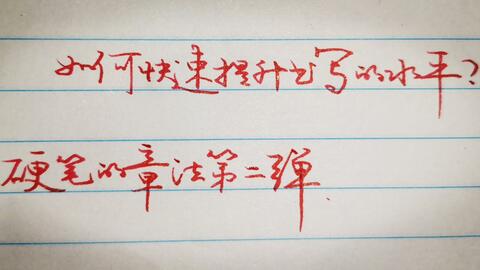 如何快速提升书写的水平？
硬笔的章法第二弹